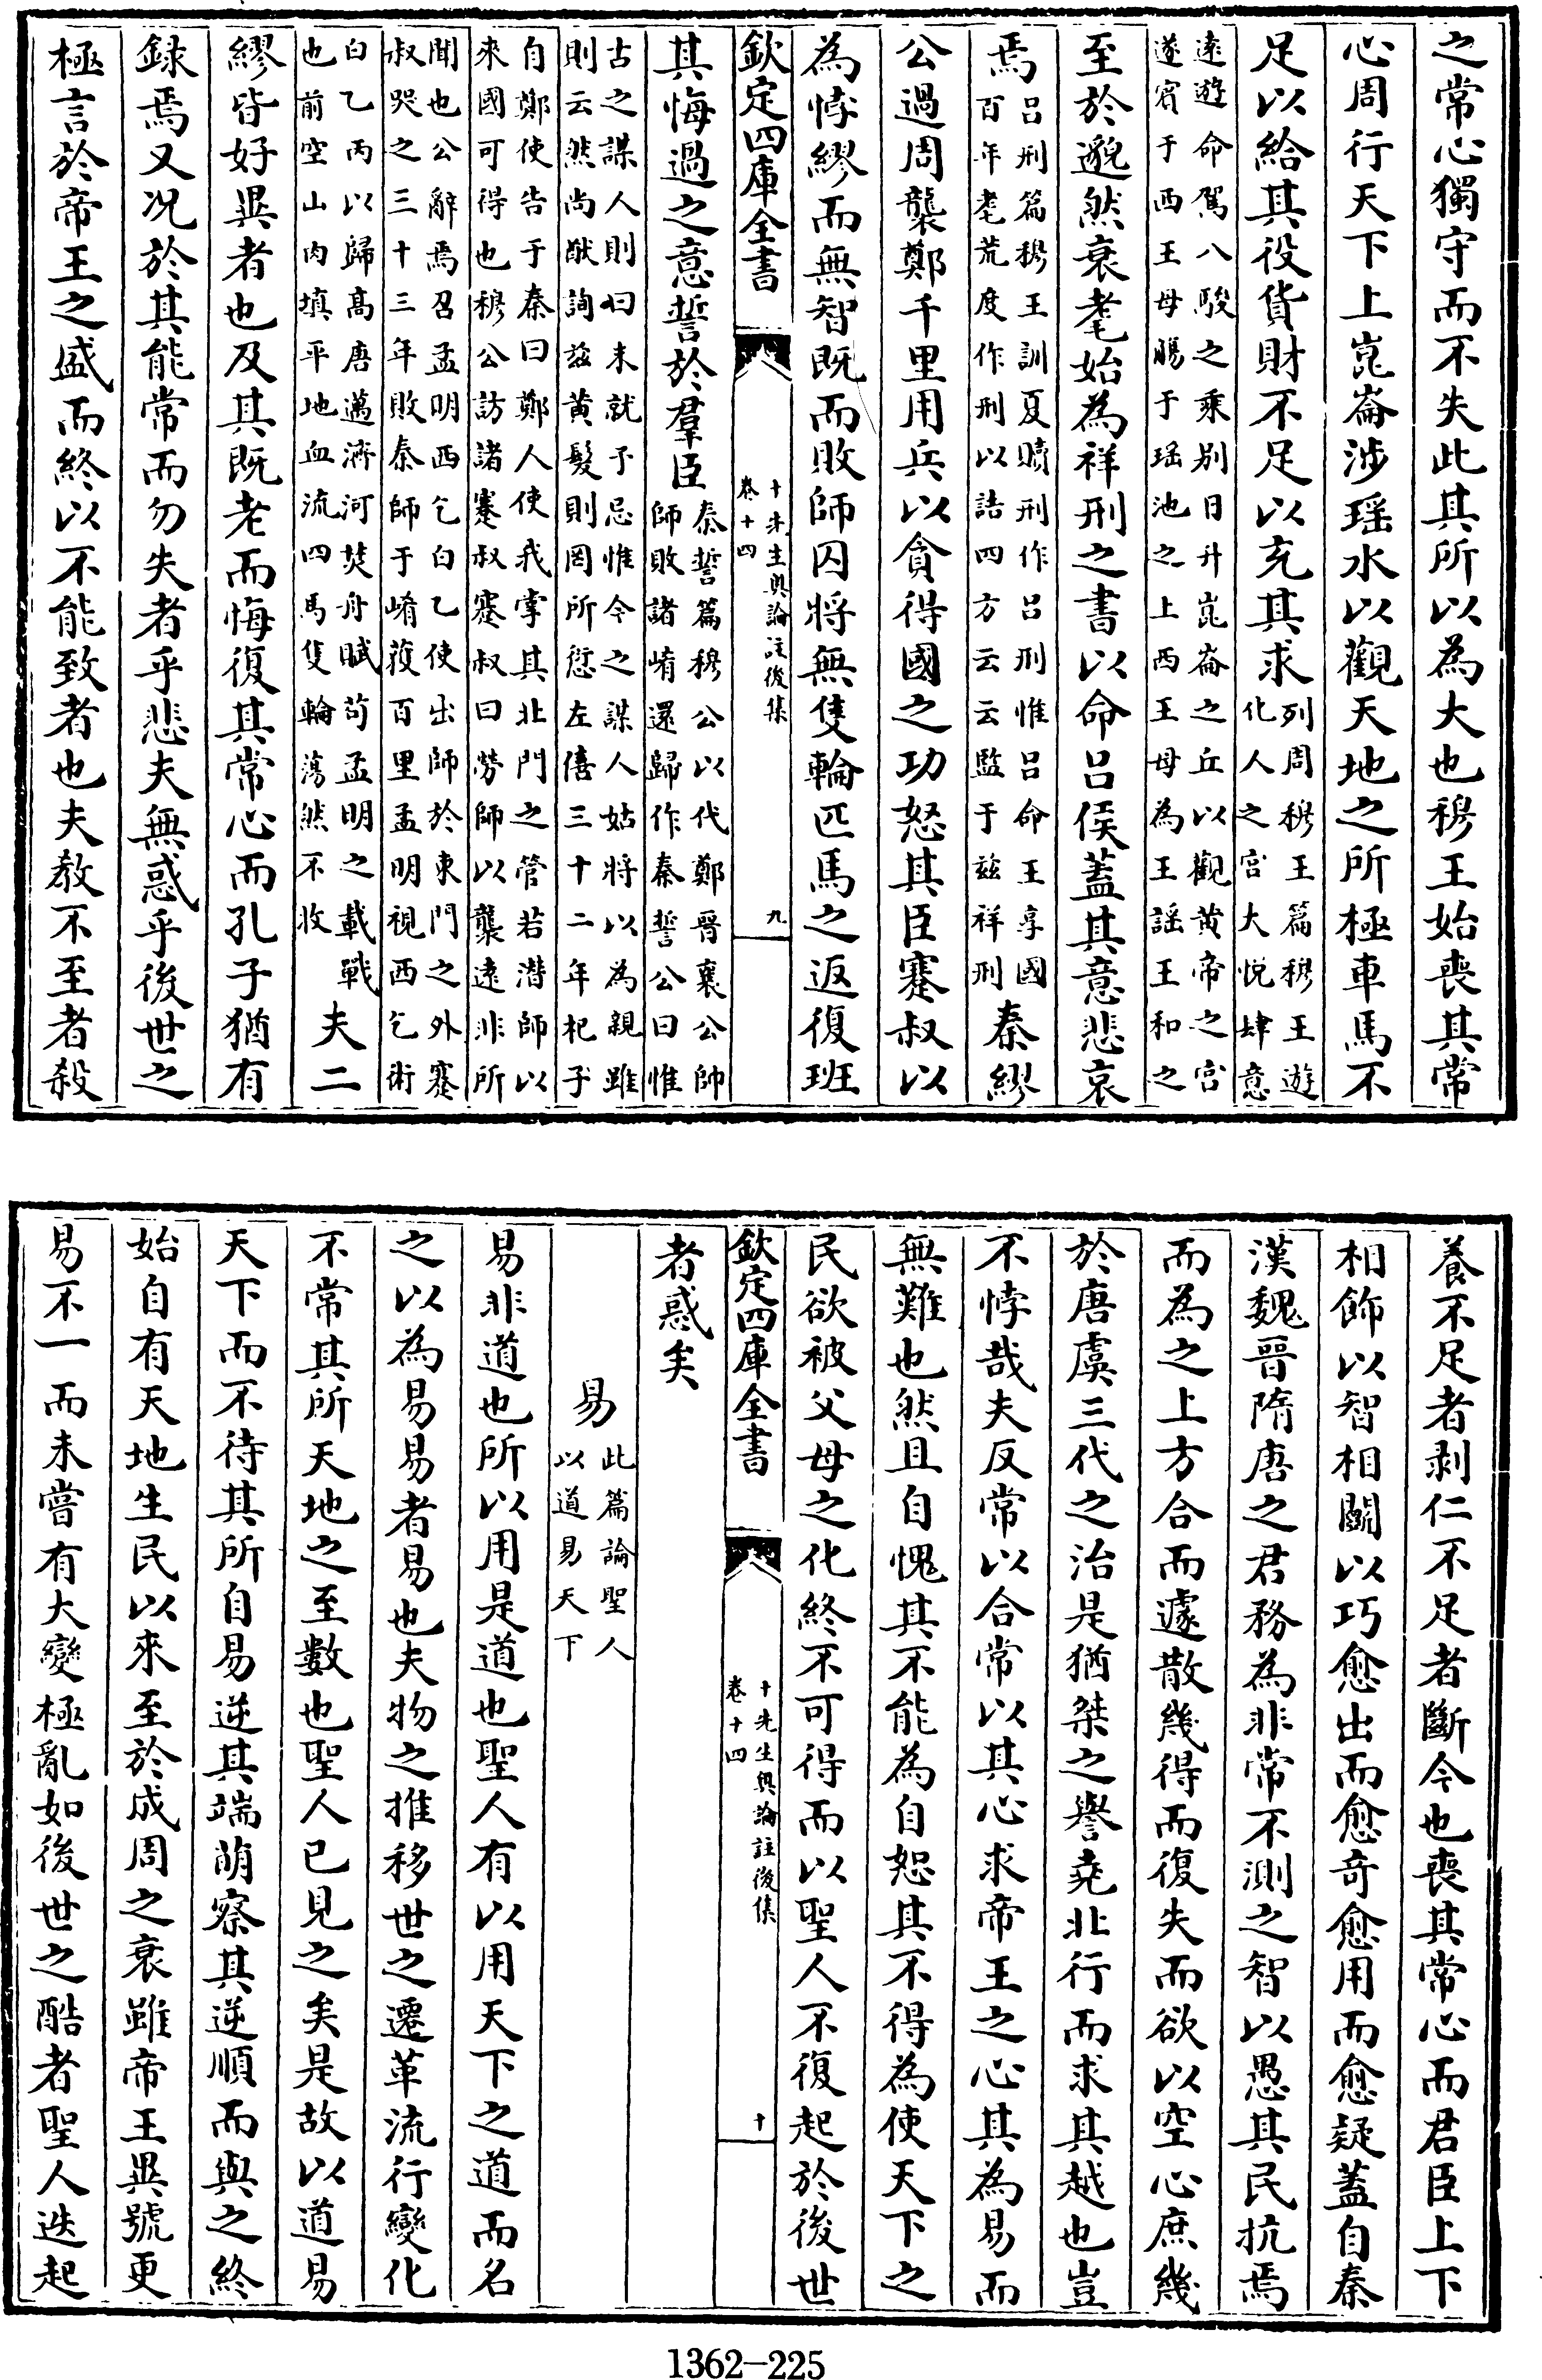 之常心獨守而不失此其所以為大也穆王始喪其常
心周行天下上崑崙涉瑶水以觀天地之所極車馬不
足以給其役貨財不足以充其求列周穆王篇穆王遊
化人之宫大悦肆意
遠遊命駕八駿之乘别日升崑崙之丘以觀黄帝之宫
遂賓于西王母觴于瑶池之上西王母為王謡王和之
至於邈然衰耄始為祥刑之書以命吕侯蓋其意悲哀
焉吕刑篇穆王訓夏贖刑作吕刑惟吕命王享國
百年耄荒度作刑以詰四方云云監于兹祥刑
秦繆
公過周襲鄭千里用兵以貪得國之功怒其臣蹇叔以
為悖繆而無智既而敗師囚將無隻輪匹馬之返復班
欽定四庫全書
十先生奥論註後集
卷十四
九
其悔過之意誓於羣臣秦誓篇穆公以代鄭晉襄公帥
師敗諸崤還歸作秦誓公曰惟
古之謀人則曰未就予忌惟今之謀人姑將以為親雖
則云然尚猷詢兹黄髮則罔所愆左僖三十二年杞子
自鄭使告于秦曰鄭人使我掌其北門之管若潜師以
來國可得也穆公訪諸蹇叔蹇叔曰勞師以襲遠非所
聞也公辭焉召孟明西乞白乙使出師於東門之外蹇
叔哭之三十三年敗秦師于崤獲百里孟明視西乞術
白乙丙以歸髙唐邁濟河焚舟賦苟孟明之載戰
也前空山肉填平地血流四馬隻輪蕩然不收
夫二
繆皆好異者也及其既老而悔復其常心而孔子猶有
録焉又况於其能常而勿失者乎悲夫無惑乎後世之
極言於帝王之盛而終以不能致者也夫教不至者殺
養不足者剥仁不足者斷今也喪其常心而君臣上下
相飾以智相鬭以巧愈出而愈奇愈用而愈疑蓋自秦
漢魏晉隋唐之君務為非常不測之智以愚其民抗焉
而為之上方合而遽散幾得而復失而欲以空心庶幾
於唐虞三代之治是猶桀之譽堯北行而求其越也豈
不悖哉夫反常以合常以其心求帝王之心其為易而
無難也然且自愧其不能為自恕其不得為使天下之
民欲被父母之化終不可得而以聖人不復起於後世
欽定四庫全書
十先生奥論註後集
卷十四
十
者惑矣
易此篇論聖人
以道易天下
易非道也所以用是道也聖人有以用天下之道而名
之以為易易者易也夫物之推移世之遷革流行變化
不常其所天地之至數也聖人已見之矣是故以道易
天下而不待其所自易逆其端萌察其逆順而與之終
始自有天地生民以來至於成周之衰雖帝王異號更
易不一而未嘗有大變極亂如後世之酷者聖人迭起
1362—225